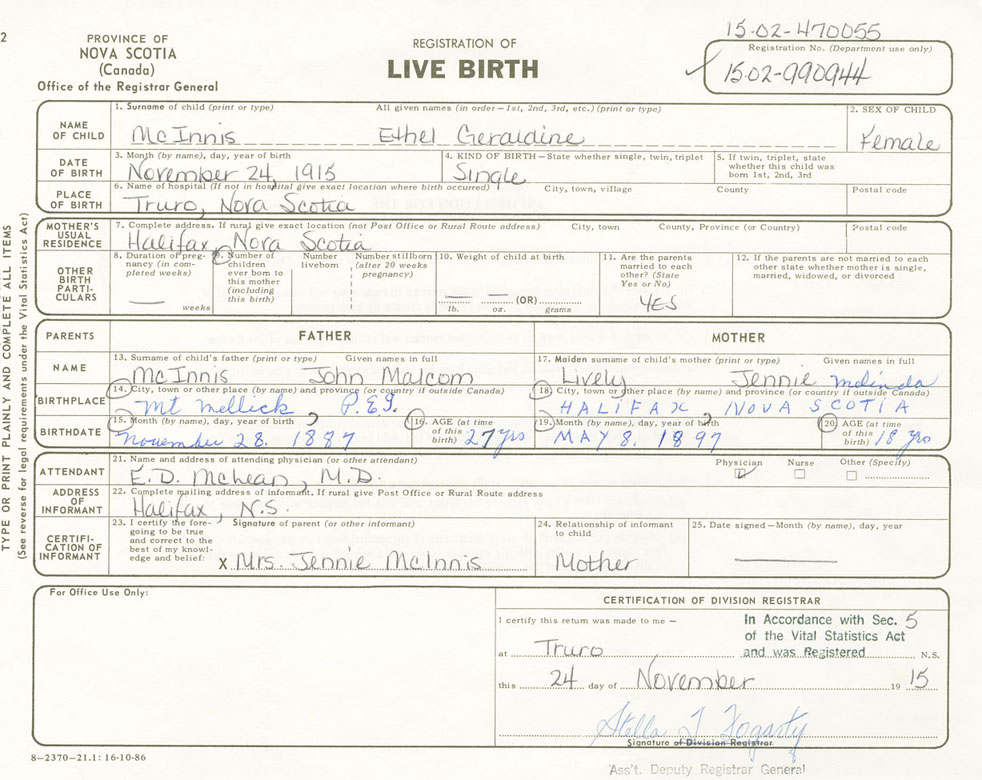 2
PROVINCE OF
NOVA SCOTIA
(Canada)
Office of the Registrar General
REGISTRATION OF
LIVE BIRTH
15-02-470055
Registration No. (Department use only)
15-02-990944
TYPE OR PRINT PLAINLY AND COMPLETE ALL ITEMS
(See reverse for legal requirements under the Vital Statistics Act)
NAME OF CHILD
1. Surname of child (print or type) All given names (in order—1st, 2nd, 3rd, etc.) (print or type)
McInnis Ethel Geraldine
2. SEX OF CHILD
Female
DATE OF BIRTH
3. Month (by name), day, year of birth
November 24, 1915
4. KIND OF BIRTH—State whether single, twin, triplet
Single
5. If twin, triplet, state
whether this child was
born 1st, 2nd, 3rd
PLACE OF BIRTH
6. Name of hospital (If not in hospital give exact location where birth occurred) City, town, village County Postal code
Truro, Nova Scotia
MOTHER'S USUAL RESIDENCE
7. Complete address. If rural give exact location (not Post Office or Rural Route address) City, town County, Province (or Country) Postal code
Halifax, Nova Scotia
OTHER BIRTH PARTI-CULARS
8. Duration of preg-
nancy (in com-
pleted weeks)
weeks
9. Number of
children
ever born to
this mother
(including
this birth)
Number
liveborn
Number stillborn
(after 20 weeks
pregnancy)
10. Weight of child at birth
lb. oz. (OR) grams
11. Are the parents
married to each
other? (State
Yes or No)
YES
12. If the parents are not married to each
other state whether mother is single,
married, widowed, or divorced
PARENTS FATHER MOTHER
NAME
13. Surname of child's father (print or type) Given names in full
McInnis John Malcom
17. Maiden surname of child's mother (print or type) Given names in full
Lively Jennie Melinda
BIRTHPLACE
14. City, town or other place (by name) and province (or country if outside Canada)
Mt Mellick, P.E.I.
18. City, town or other place (by name) and province (or country if outside Canada)
HALIFAX, NOVA SCOTIA
BIRTHDATE
15. Month (by name), day, year of birth
November 28. 1887
16. AGE (at time
of this
birth) 27 yrs
19. Month (by name), day, year of birth
MAY 8. 1897
20. AGE (at time
of this
birth) 18 yrs
ATTENDANT
21. Name and address of attending physician (or other attendant)
E.D. McLean, M.D.
Physician Nurse Other (Specify)
ADDRESS OF INFORMANT
22. Complete mailing address of informant. If rural give Post Office or Rural Route address
Halifax, N.S.
CERTIFI-CATION OF INFORMANT
23. I certify the fore-
going to be true
and correct to the
best of my knowl-
edge and belief:
Signature of parent (or other informant)
X Mrs. Jennie McInnis
24. Relationship of informant
to child
Mother
25. Date signed—Month (by name), day, year
For Office Use Only:
CERTIFICATION OF DIVISION REGISTRAR
I certify this return was made to me—
In Accordance with Sec. 5
of the Vital Statistics Act
and was Registered
at Truro N.S.
this 24 day of November 19 15
Stella T Fogarty
Signature of Division Registrar
Ass't. Deputy Registrar General
8-2370-21.1: 16-10-86